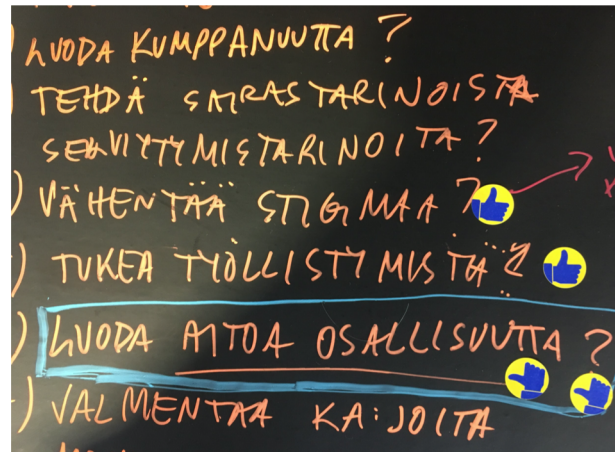 ) LUODA KUMPPANUUTTA?
) TEHDÄ SAIRASTARINOISTA
SELVIYTYMISTARINOITA?
) VÄHENTÄÄ STIGMAA?
) TUKEA TYÖLLISTYMISTÄ?
) LUODA AITOA OSALLISUUTTA?
) VALMENTAA KA:JOITA